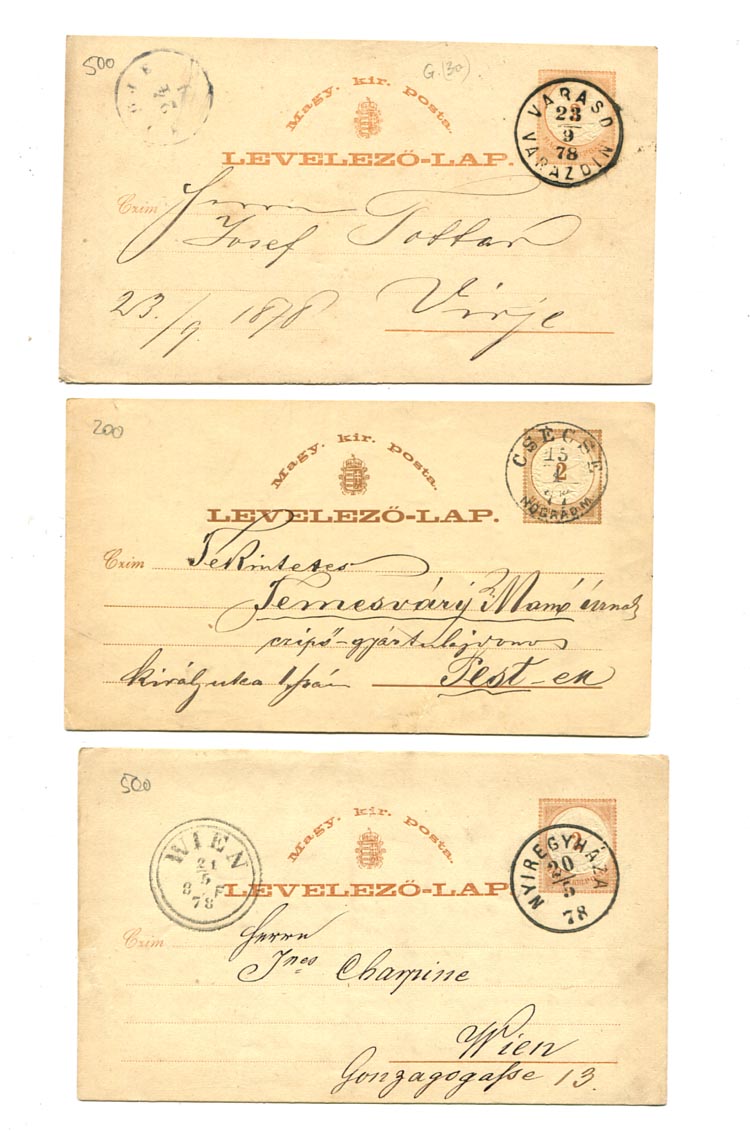 500
G. (30)
Magy. kir. posta.
LEVELEZŐ-LAP.
VARASD
23
9
78
VARAZDIN
Czim
Herrn
Josef Tottar
23./9. 1878
Virje
200
Magy. kir. posta.
LEVELEZŐ-LAP.
CSÉCSE
15
2
NÓGRÁD M.
Czim
Tekintetes
Temesváry Manó úrnak
czipő-gyártulajdonos
király utca
Pest-en
500
Magy. kir. posta.
LEVELEZŐ-LAP
WIEN
21
5
8 F
78
NYIREGYHÁZA
20
5
78
Czim
Herrn
Charpine
Wien
Gonzagogasse 13.